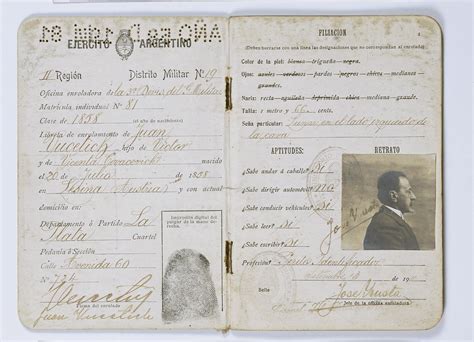 EJERCITO ARGENTINO
II Región Distrito Militar Nº 19
Oficina enroladora de la
Matrícula individual Nº 81
Clase de 1858 (el año de nacimiento)
Libreta de enrolamiento de Juan
Vucetich, hijo de Victor
y de Vicenta Covacevich nacido
el 20 de Julio de 1858
en Lesina (Austria) y con actual
domicilio en:
Departamento ó Partido La
Plata Cuartel
Pedanía ó Sección
Calle Avenida 60
Nº
Impresión digital del
pulgar de la mano derecha
Firma del enrolado
Juan Vucetich
FILIACION
(Deben borrarse con una línea las designaciones que no correspondan al enrolado)
Color de la piel: blanca - trigueña - negra.
Ojos: azules - verdosos - pardos - negros - chicos - medianos
grandes.
Nariz: recta - aguileña - deprimida - chica - mediana - grande.
Talla: 1 metro, 66 cent.
Seña particular: Lunar en el lado izquierdo de
la cara
APTITUDES:
RETRATO
¿Sabe andar á caballo? Si
¿Sabe dirigir automóvil? No
¿Sabe conducir vehículos? Si
¿Sabe leer? Si
¿Sabe escribir? Si
Profesión: Perito Identificador
Sello
José Usta
Jefe de la oficina enroladora